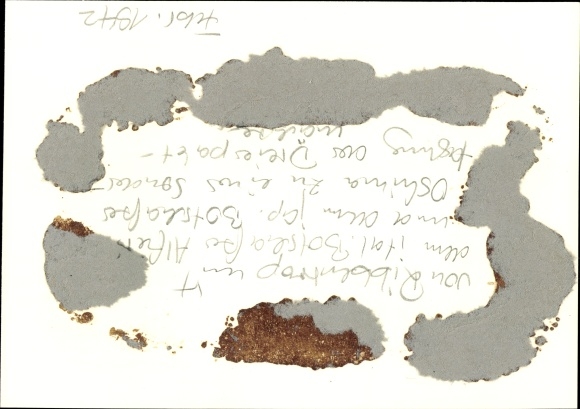 von Ribbentrop mit
dem ital. Botschafter Alfieri
und dem jap. Botschafter
Oshima zu einer Sonder-
tagung des Dreierpakt-
mächte
Febr. 1942